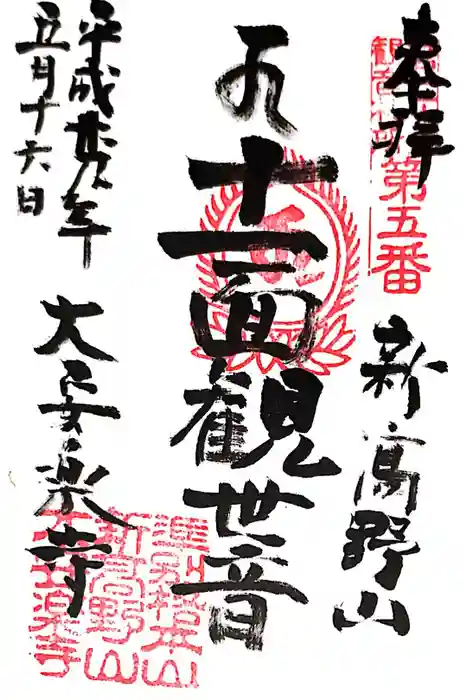 奉拝
第五番
新高野山
十一面観世音
平成廿八年
五月十六日
大安楽寺
準別格本山
新高野山
大安楽寺